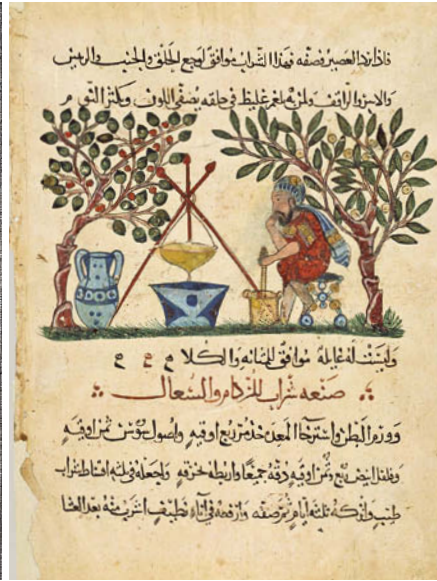 فاذا برد العصير فصفه فهذا الشراب موافق لوجع الحلق والجنب
ولمن به بلغم غليظ في حلقه يصفي اللون ويكثر النوم
وليست له غايلة موافق للمثانه والكلا
صنعه شراب للزكام والسعال
وورم البطن واسترخا المعده خذ مر ربع اوقيه واصول سوسن ثمن اوقيه
وفلفل ابيض ربع وثمن اوقيه دقه جميعا واربطه بخرقه واجعله في ثلثه اقساط شراب
طيب واتركه ثلثه ايام ثم صفه وارفعه في اناء نظيف اشرب منه بعد العشا